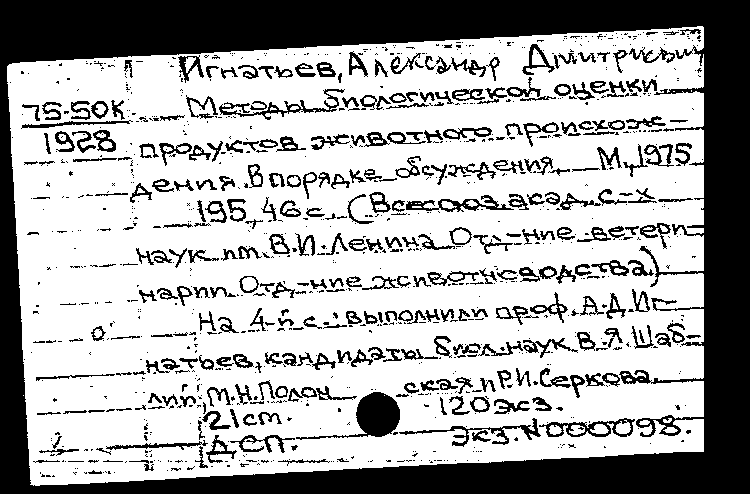 Игнатьев, Александр Дмитриевич
75-50К Методы биологической оценки
1928 продуктов животного происхож-
дения. В порядке обсуждения. М., 1975
195, 46 с. (Всесоюз. акад. с.-х
наук им. В.И. Ленина Отд-ние ветери-
нарии. Отд-ние животноводства.)
На 4-й с.: выполнили проф. А.Д. Иг-
натьев, кандидаты биол. наук В.Я. Шаб-
лий, М.Н. Полон ская и Р.И. Серкова.
21 cm. 120 экз.
ДСП. Экз. N000098.